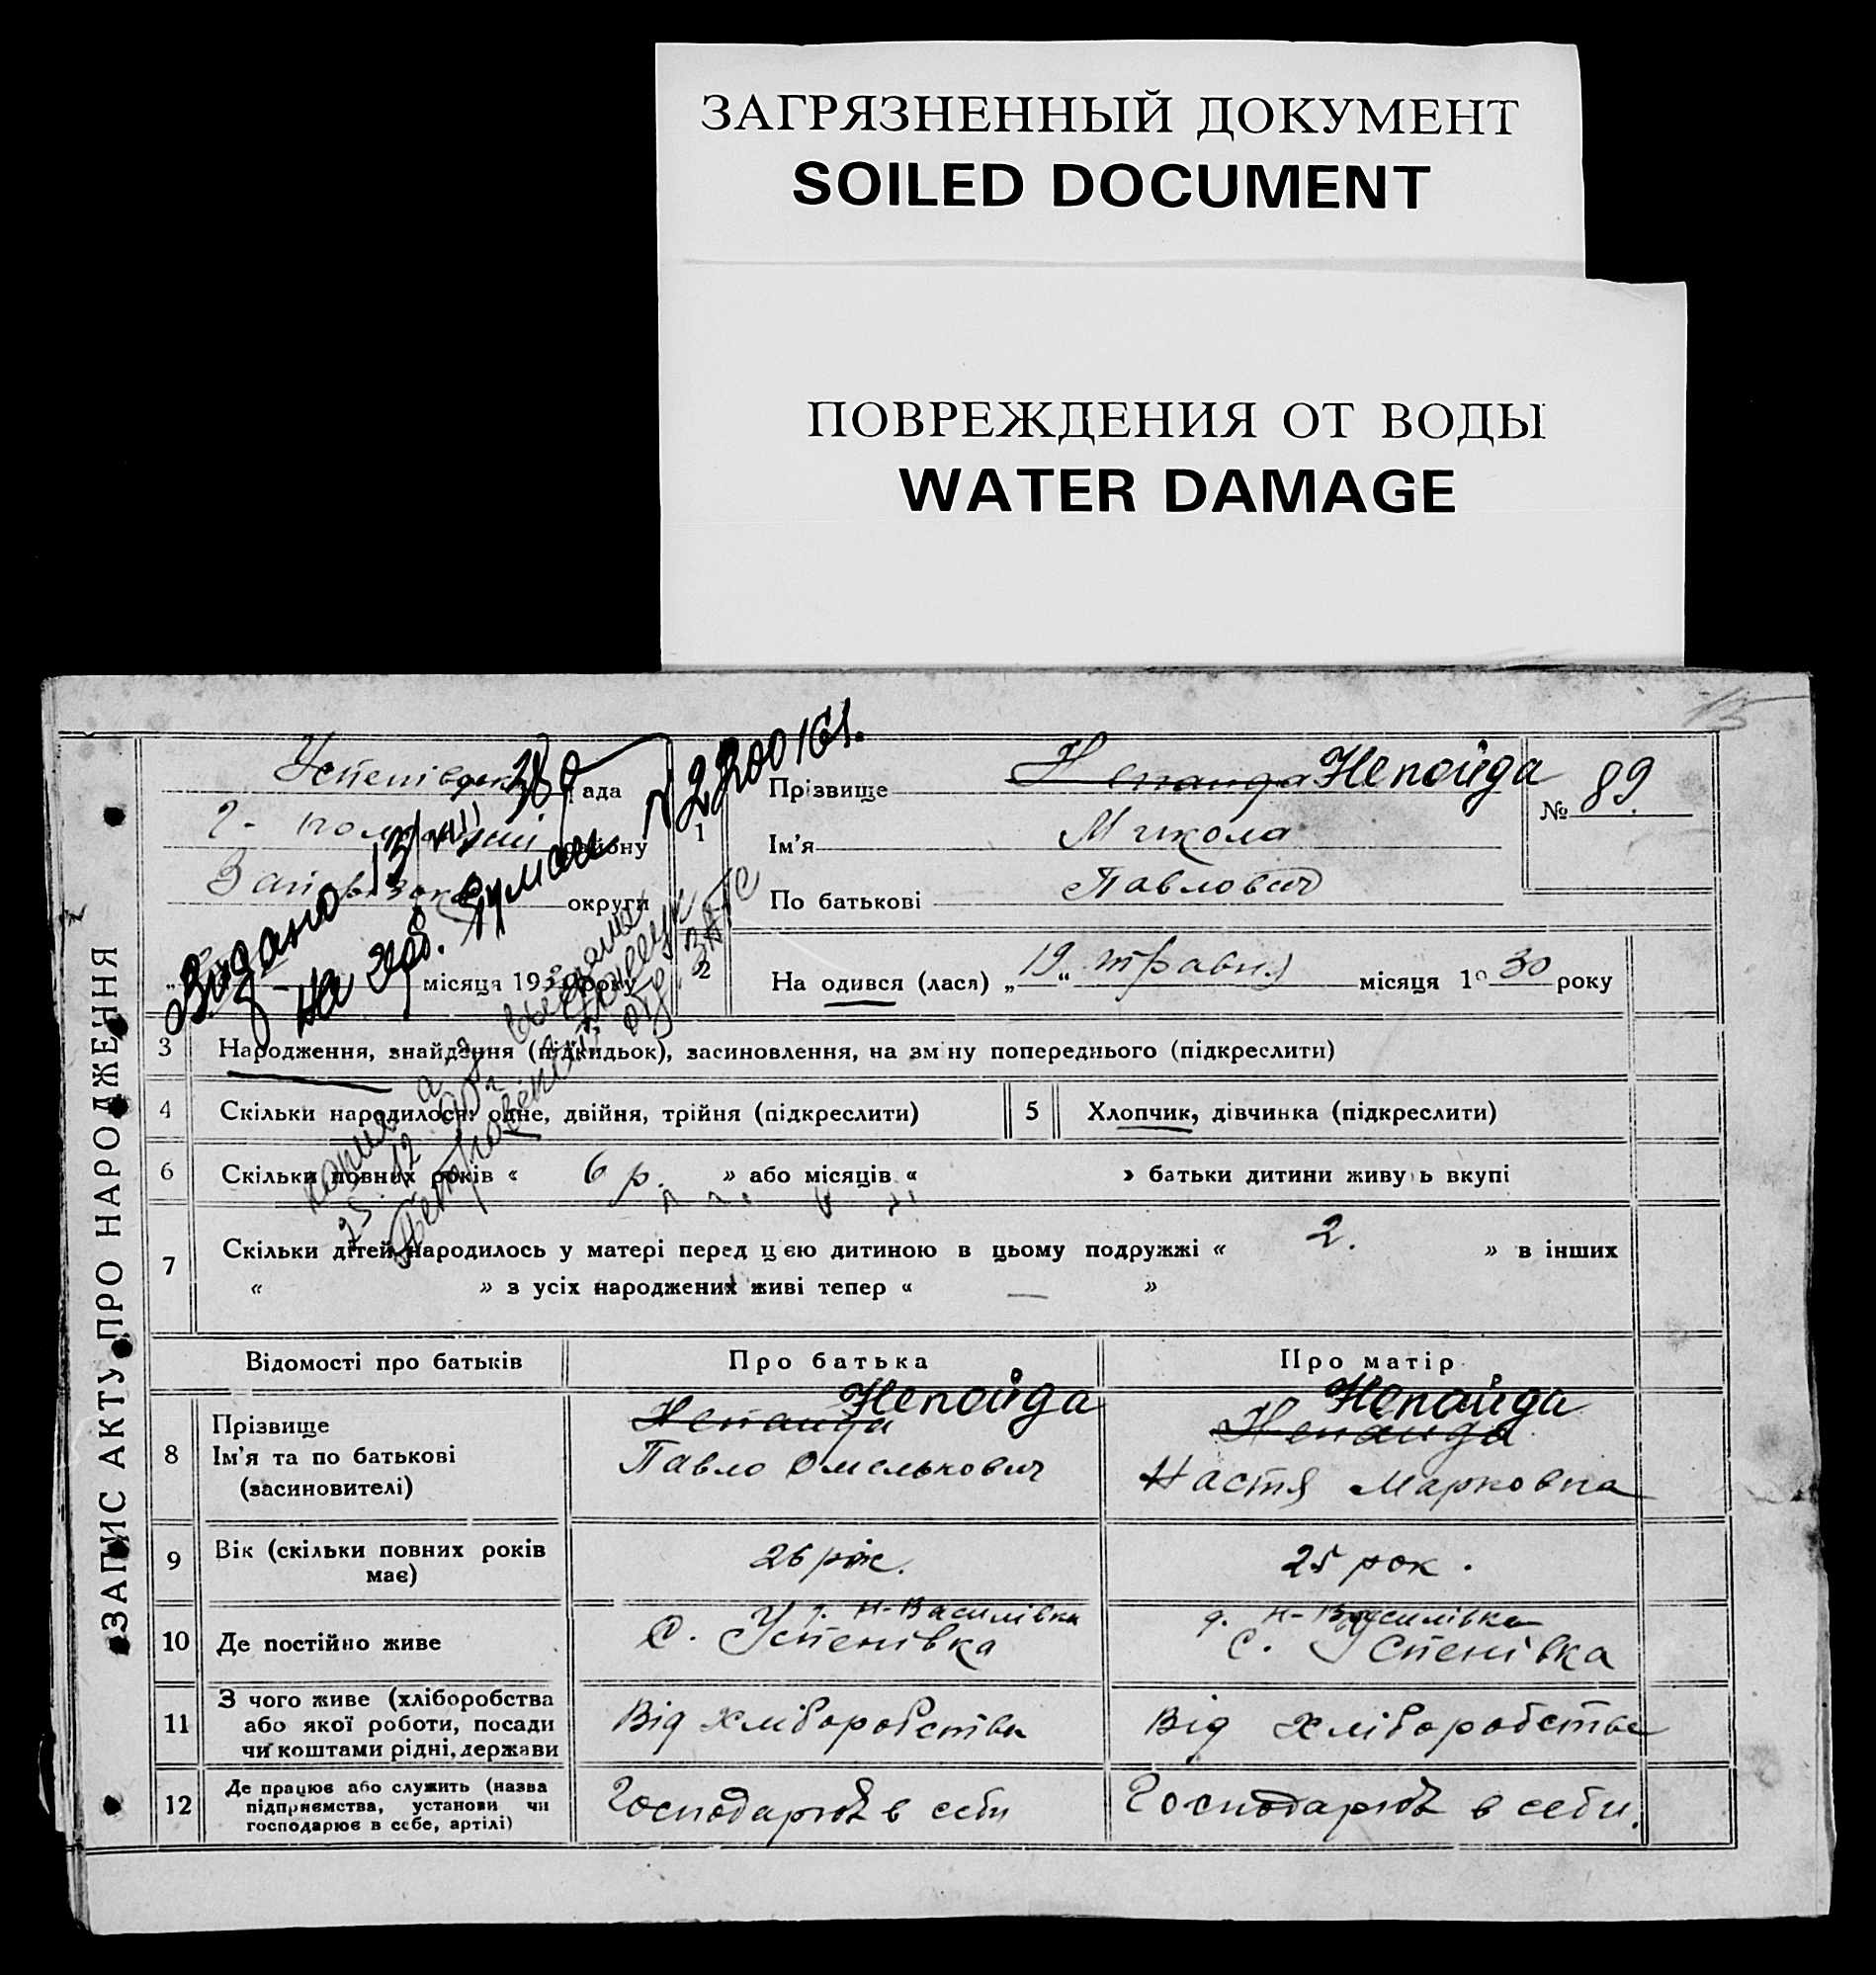 ЗАГРЯЗНЕННЫЙ ДОКУМЕНТ
SOILED DOCUMENT
ПОВРЕЖДЕНИЯ ОТ ВОДЫ
WATER DAMAGE
15
ЗАПИС АКТУ ПРО НАРОДЖЕННЯ
Успенівська рада
району
округи
місяця 193 року
Видано 13/VIII
на
1 Прізвище Непаида Непойда
№ 89.
Ім'я Микола
По батькові Павлович
2 На одився (лася) „ 19 “ травня місяця 19 30 року
3 Народження, знайдення (підкидьок), засиновлення, на зміну попереднього (підкреслити)
4 Скільки народилося: одне, двійня, трійня (підкреслити)
5 Хлопчик, дівчинка (підкреслити)
6 Скільки повних років « 6 р. » або місяців « » батьки дитини живуть вкупі
7 Скільки дітей народилось у матері перед цією дитиною в цьому подружжі « 2. » в інших
« » з усіх народжених живі тепер « — »
Відомості про батьків Про батька Про матір
8 Прізвище
Ім'я та по батькові
(засиновителі)
Непаида Непойда
Павло Омелькович
Непойда
Непаида
Настя Марковна
9 Вік (скільки повних років має)
26 рік.
25 рок.
10 Де постійно живе
д. Н-Василівка
с. Успенівка
д. Н-Василівка
с. Успенівка
11 З чого живе (хліборобства
або якої роботи, посади
чи коштами рідні, держави
Від хліборобства
Від хліборобства
12 Де працює або служить (назва
підприємства, установи чи
господарює в себе, артілі)
Господарюе в себи
Господарюе в себи.